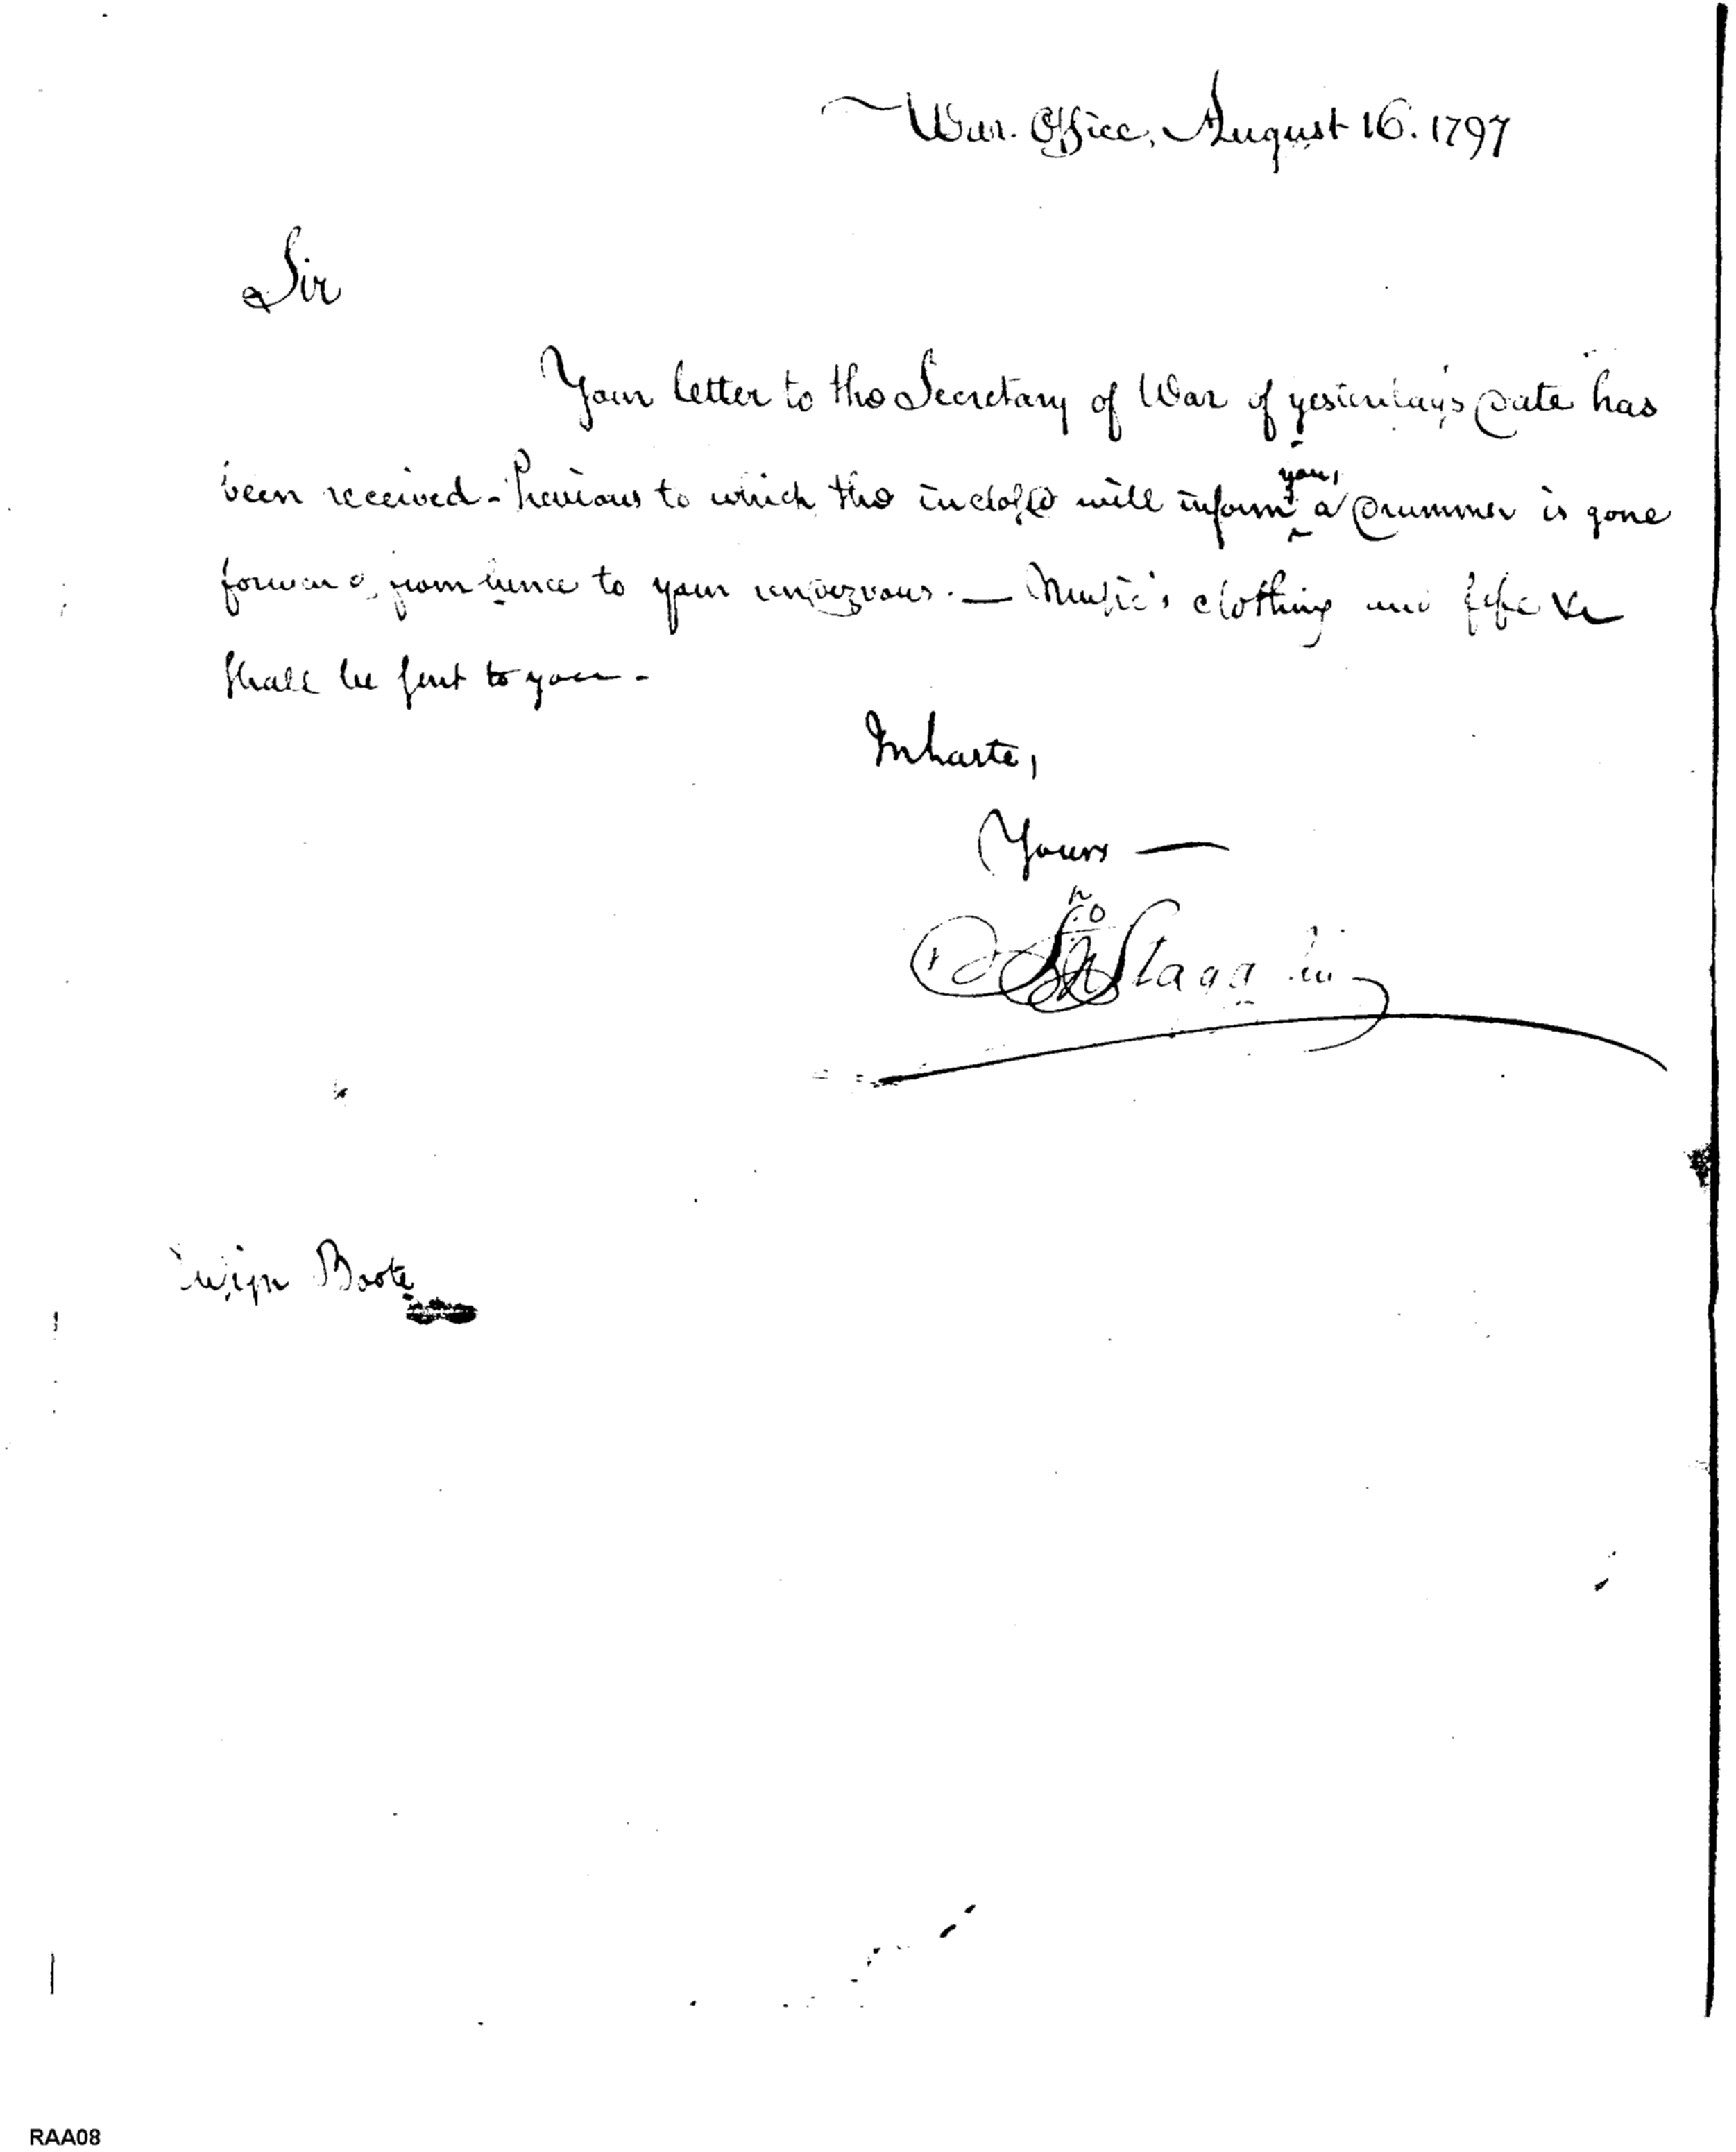 War Office, August 16. 1797
Sir
Your letter to the Secretary of War of yesterday's date has
been received - Previous to which the inclosed will inform you, a Drummer is gone
forward, from hence to your rendezvous. — Music's clothing and fife &c
shall be sent to you -
In haste,
Yours —
Jno Stagg Jr
Ensign Boote
RAA08